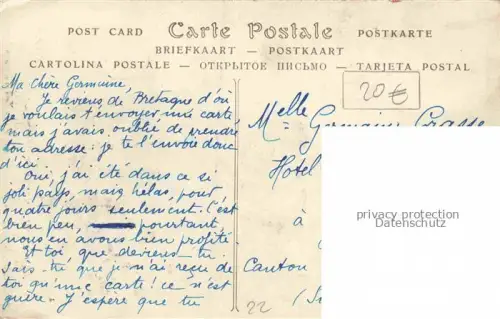 POST CARD Carte Postale POSTKARTE
BRIEFKAART — POSTKAART
CARTOLINA POSTALE — ОТКРЫТОЕ ПИСЬМО — TARJETA POSTAL
20€
Ma chère Germaine,
Je reviens de Bretagne d'où
je voulais t'envoyer une carte
mais j'avais oublié de prendre
ton adresse: je te l'envoie donc
d'ici.
Oui, j'ai été dans ce si
joli pays, mais hélas, pour
quatre jours seulement. C'est
bien peu, pourtant
nous en avons bien profité.
Et toi que deviens tu.
Sais-tu que je n'ai reçu de
toi qu'une carte! ce n'est
guère. J'espère que tu
Melle Germaine
Hotel
à
Canton
22
privacy protection by
oldthing.de